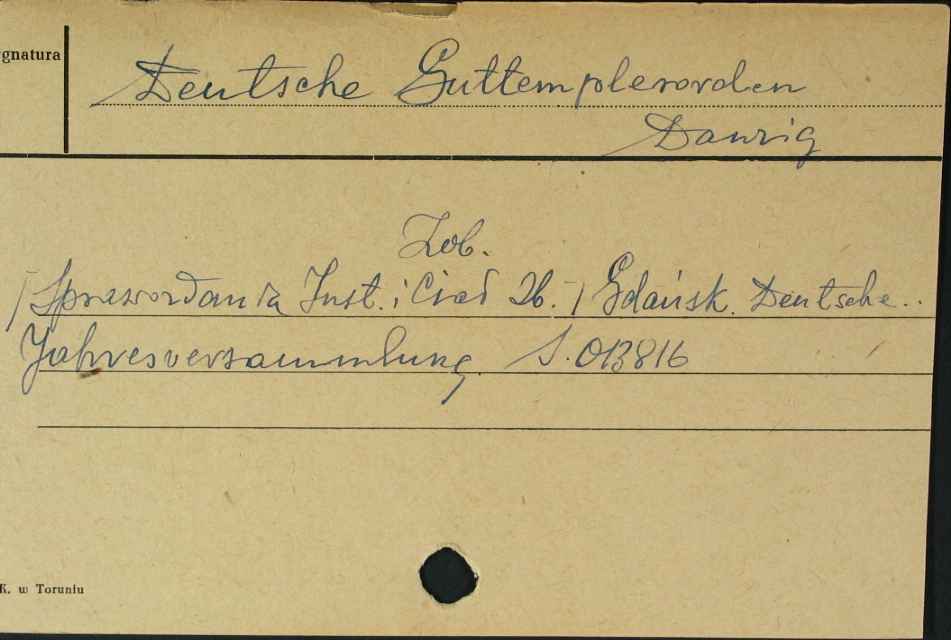 gnatura
Deutsche Guttemplerorden
Danzig
Zob.
/Sprawozdania Inst. i Ciał Zb./ Gdańsk. Deutsche..
Jahresversammlung. S. 013816
K. w Toruniu